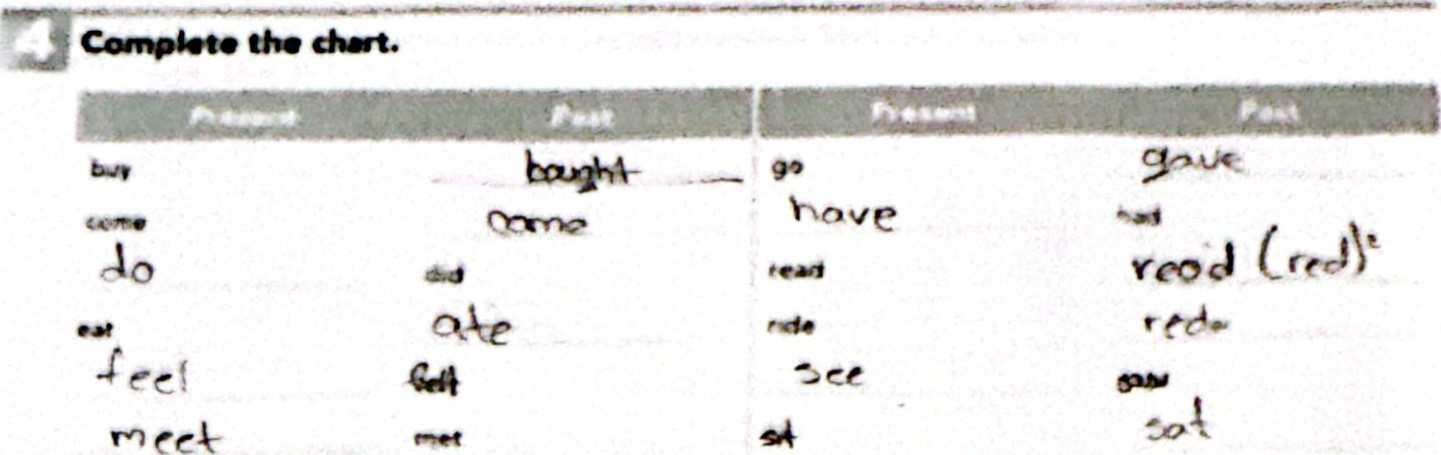 4 Complete the chart.
Present Past Present Past
buy bought go gave
come come have had
do did read read (red)
eat ate ride rede
feel felt see saw
meet met sit sat